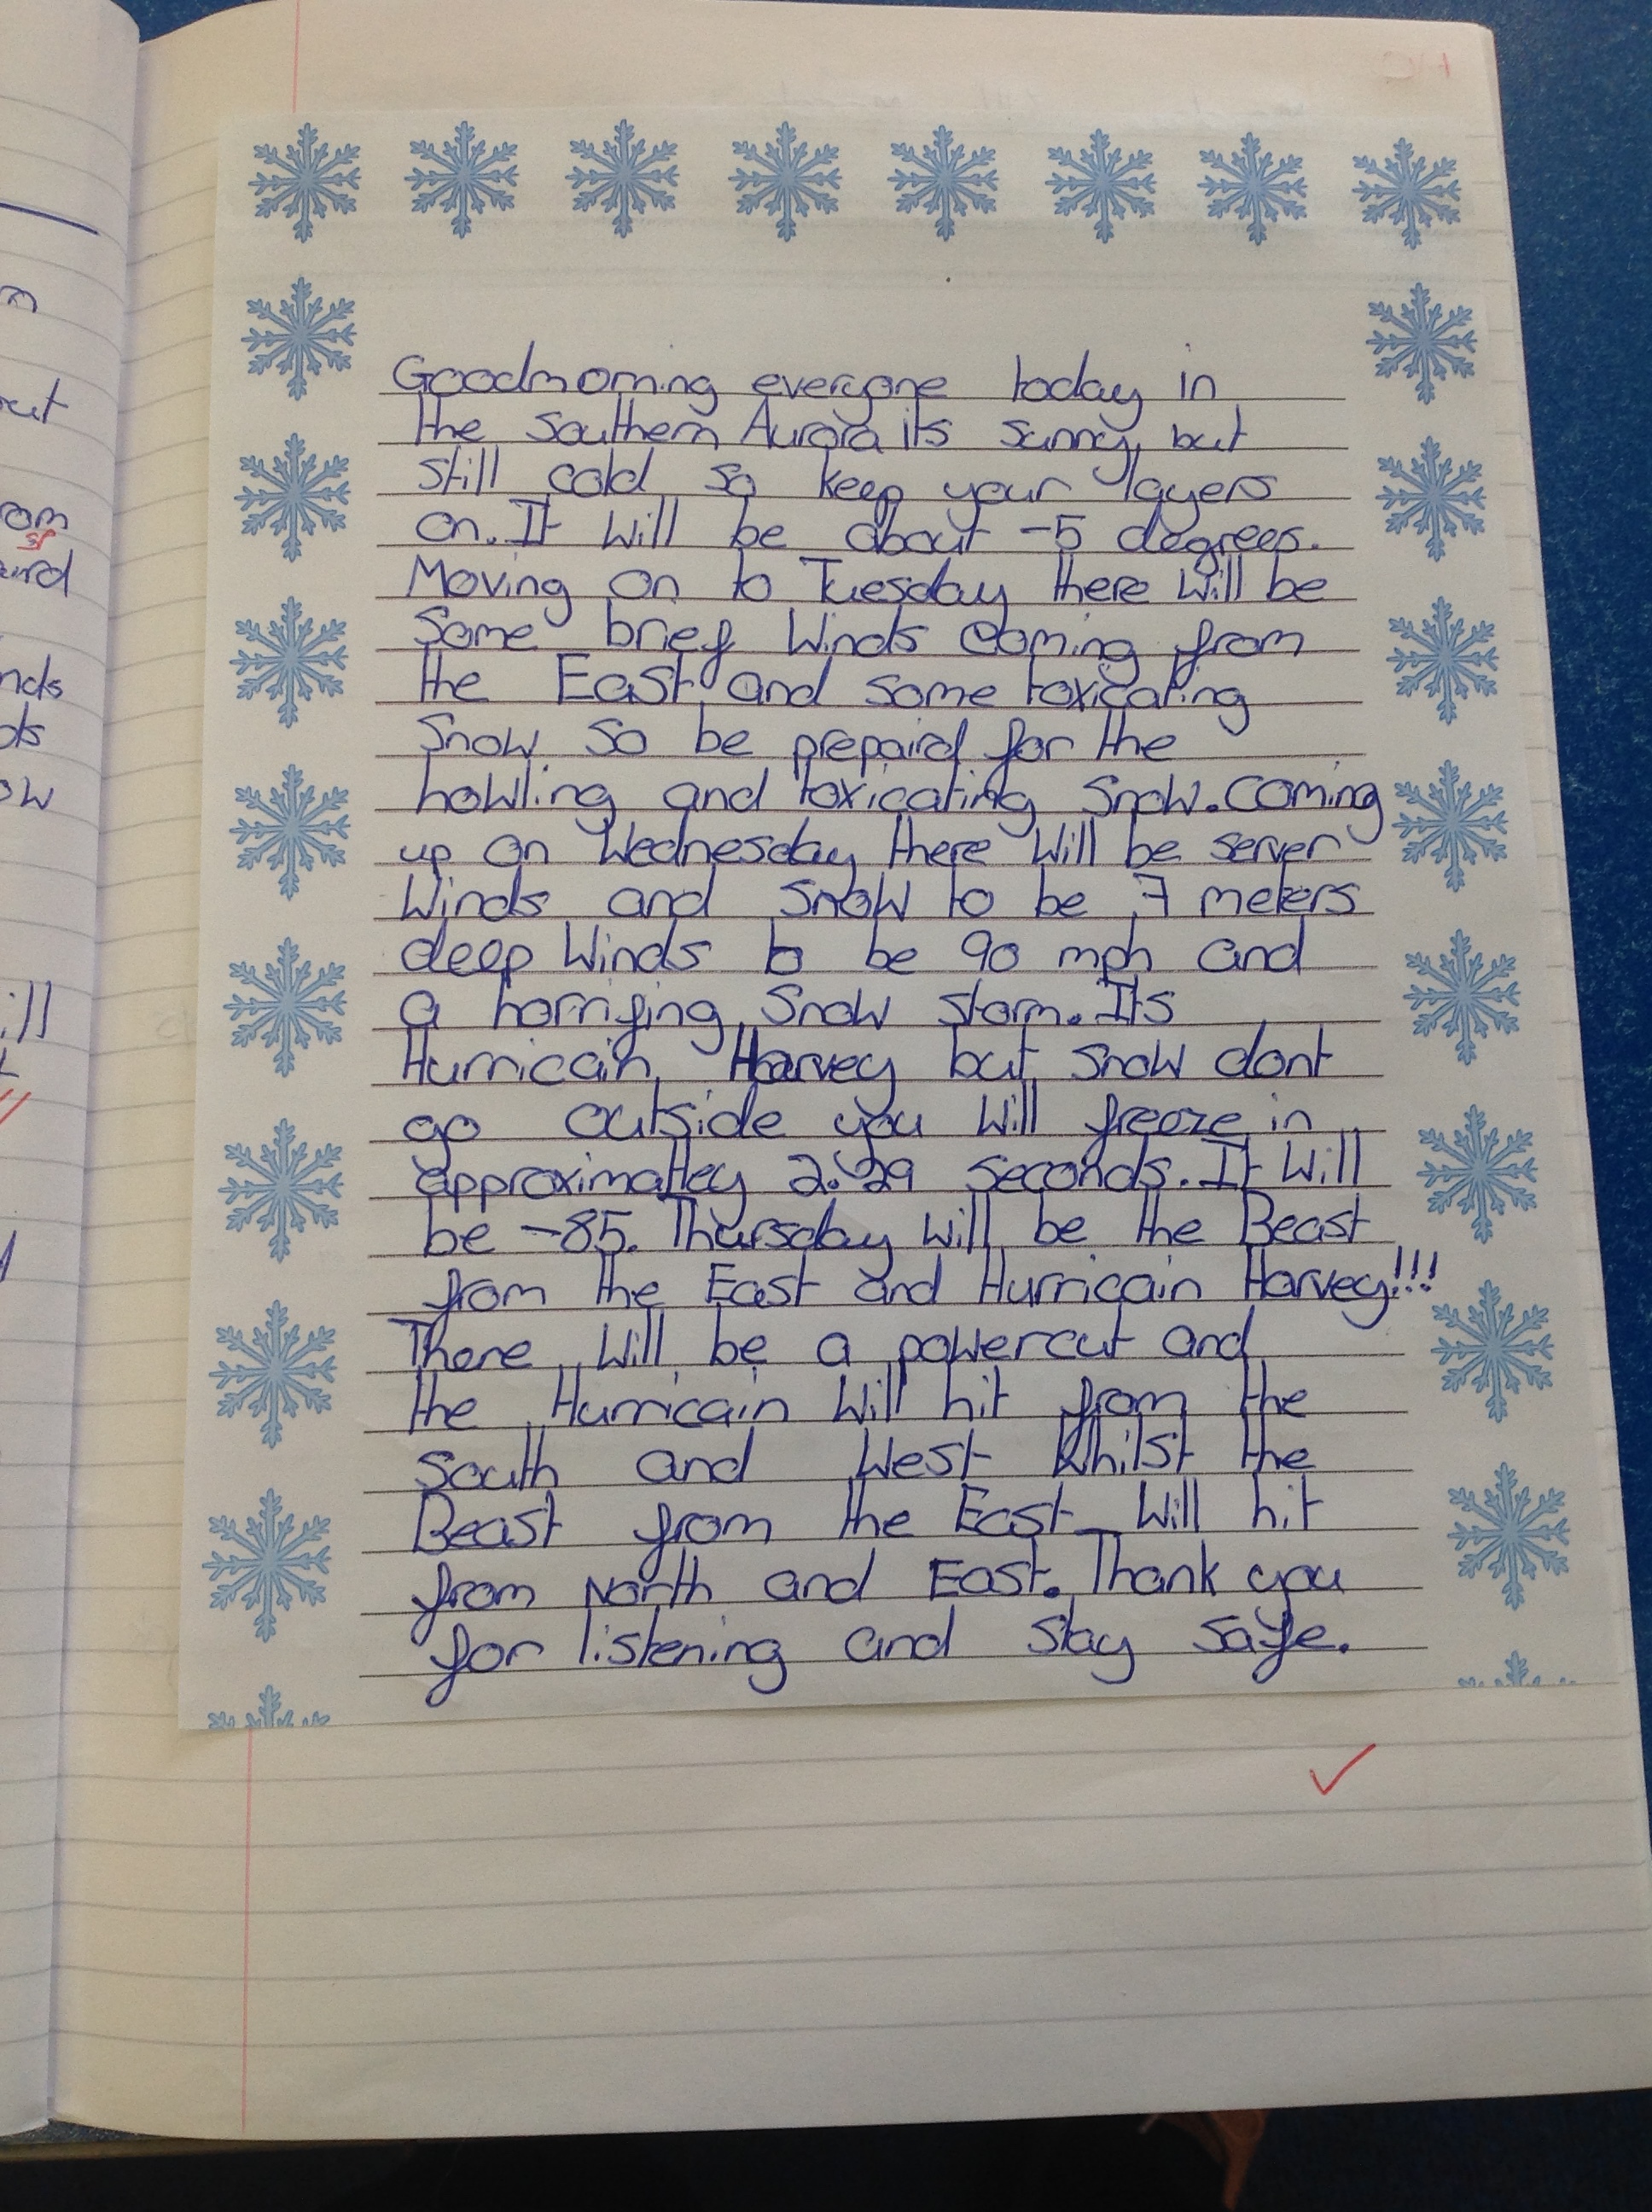 Goodmorning everyone today in
the Southern Aurora its sunny but
still cold so keep your layers
on. It will be about -5 degrees.
Moving on to Tuesday there will be
Some brief Winds coming from
the East and some toxicating
Snow so be prepaird for the
howling and toxicating Snow. Coming
up on Wednesday there will be server
Winds and Snow to be 7 meters
deep Winds to be 90 mph and
a horrifing Snow storm. Its
Hurricain Harvey but snow dont
go outside you will freeze in
approximatley 2:29 seconds. It will
be -85. Thursday will be the Beast
from the East and Hurricain Harvey!!!
There will be a powercut and
the Hurricain will hit from the
South and West Whilst the
Beast from the East will hit
from North and East. Thank you
for listening and stay safe.
om
sp
nds
ow